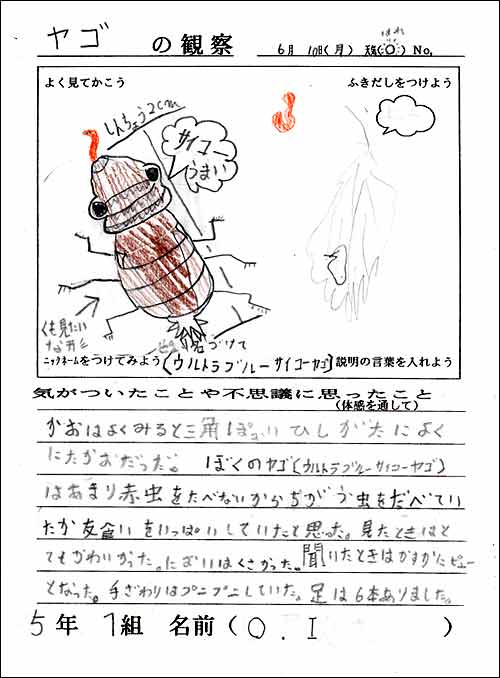 ヤゴ の観察 6月 10日(月) 天気( ) No.
はれ
よく見てかこう
ふきだしをつけよう
しんちょう2cm
サイコー
うまい
くも見たい
なガラ
名づけて
ニックネームをつけてみよう(ウルトラブルーサイコーヤゴ) 説明の言葉を入れよう
気がついたことや不思議に思ったこと
(体感を通して)
かおはよくみると三角ぽい ひしがたによく
にたかおだった。 ぼくのヤゴ(ウルトラブルーサイコーヤゴ)
はあまり赤虫をたべないからちがう虫をたべてい
たか友食いをいっぱいしていたと思った。見たときはと
てもかわいかった。においはくさかった。聞いたときはかすかにピュー
となった。手ざわりはプニプニしていた。足は6本ありました。
5年 1組 名前(O.I )